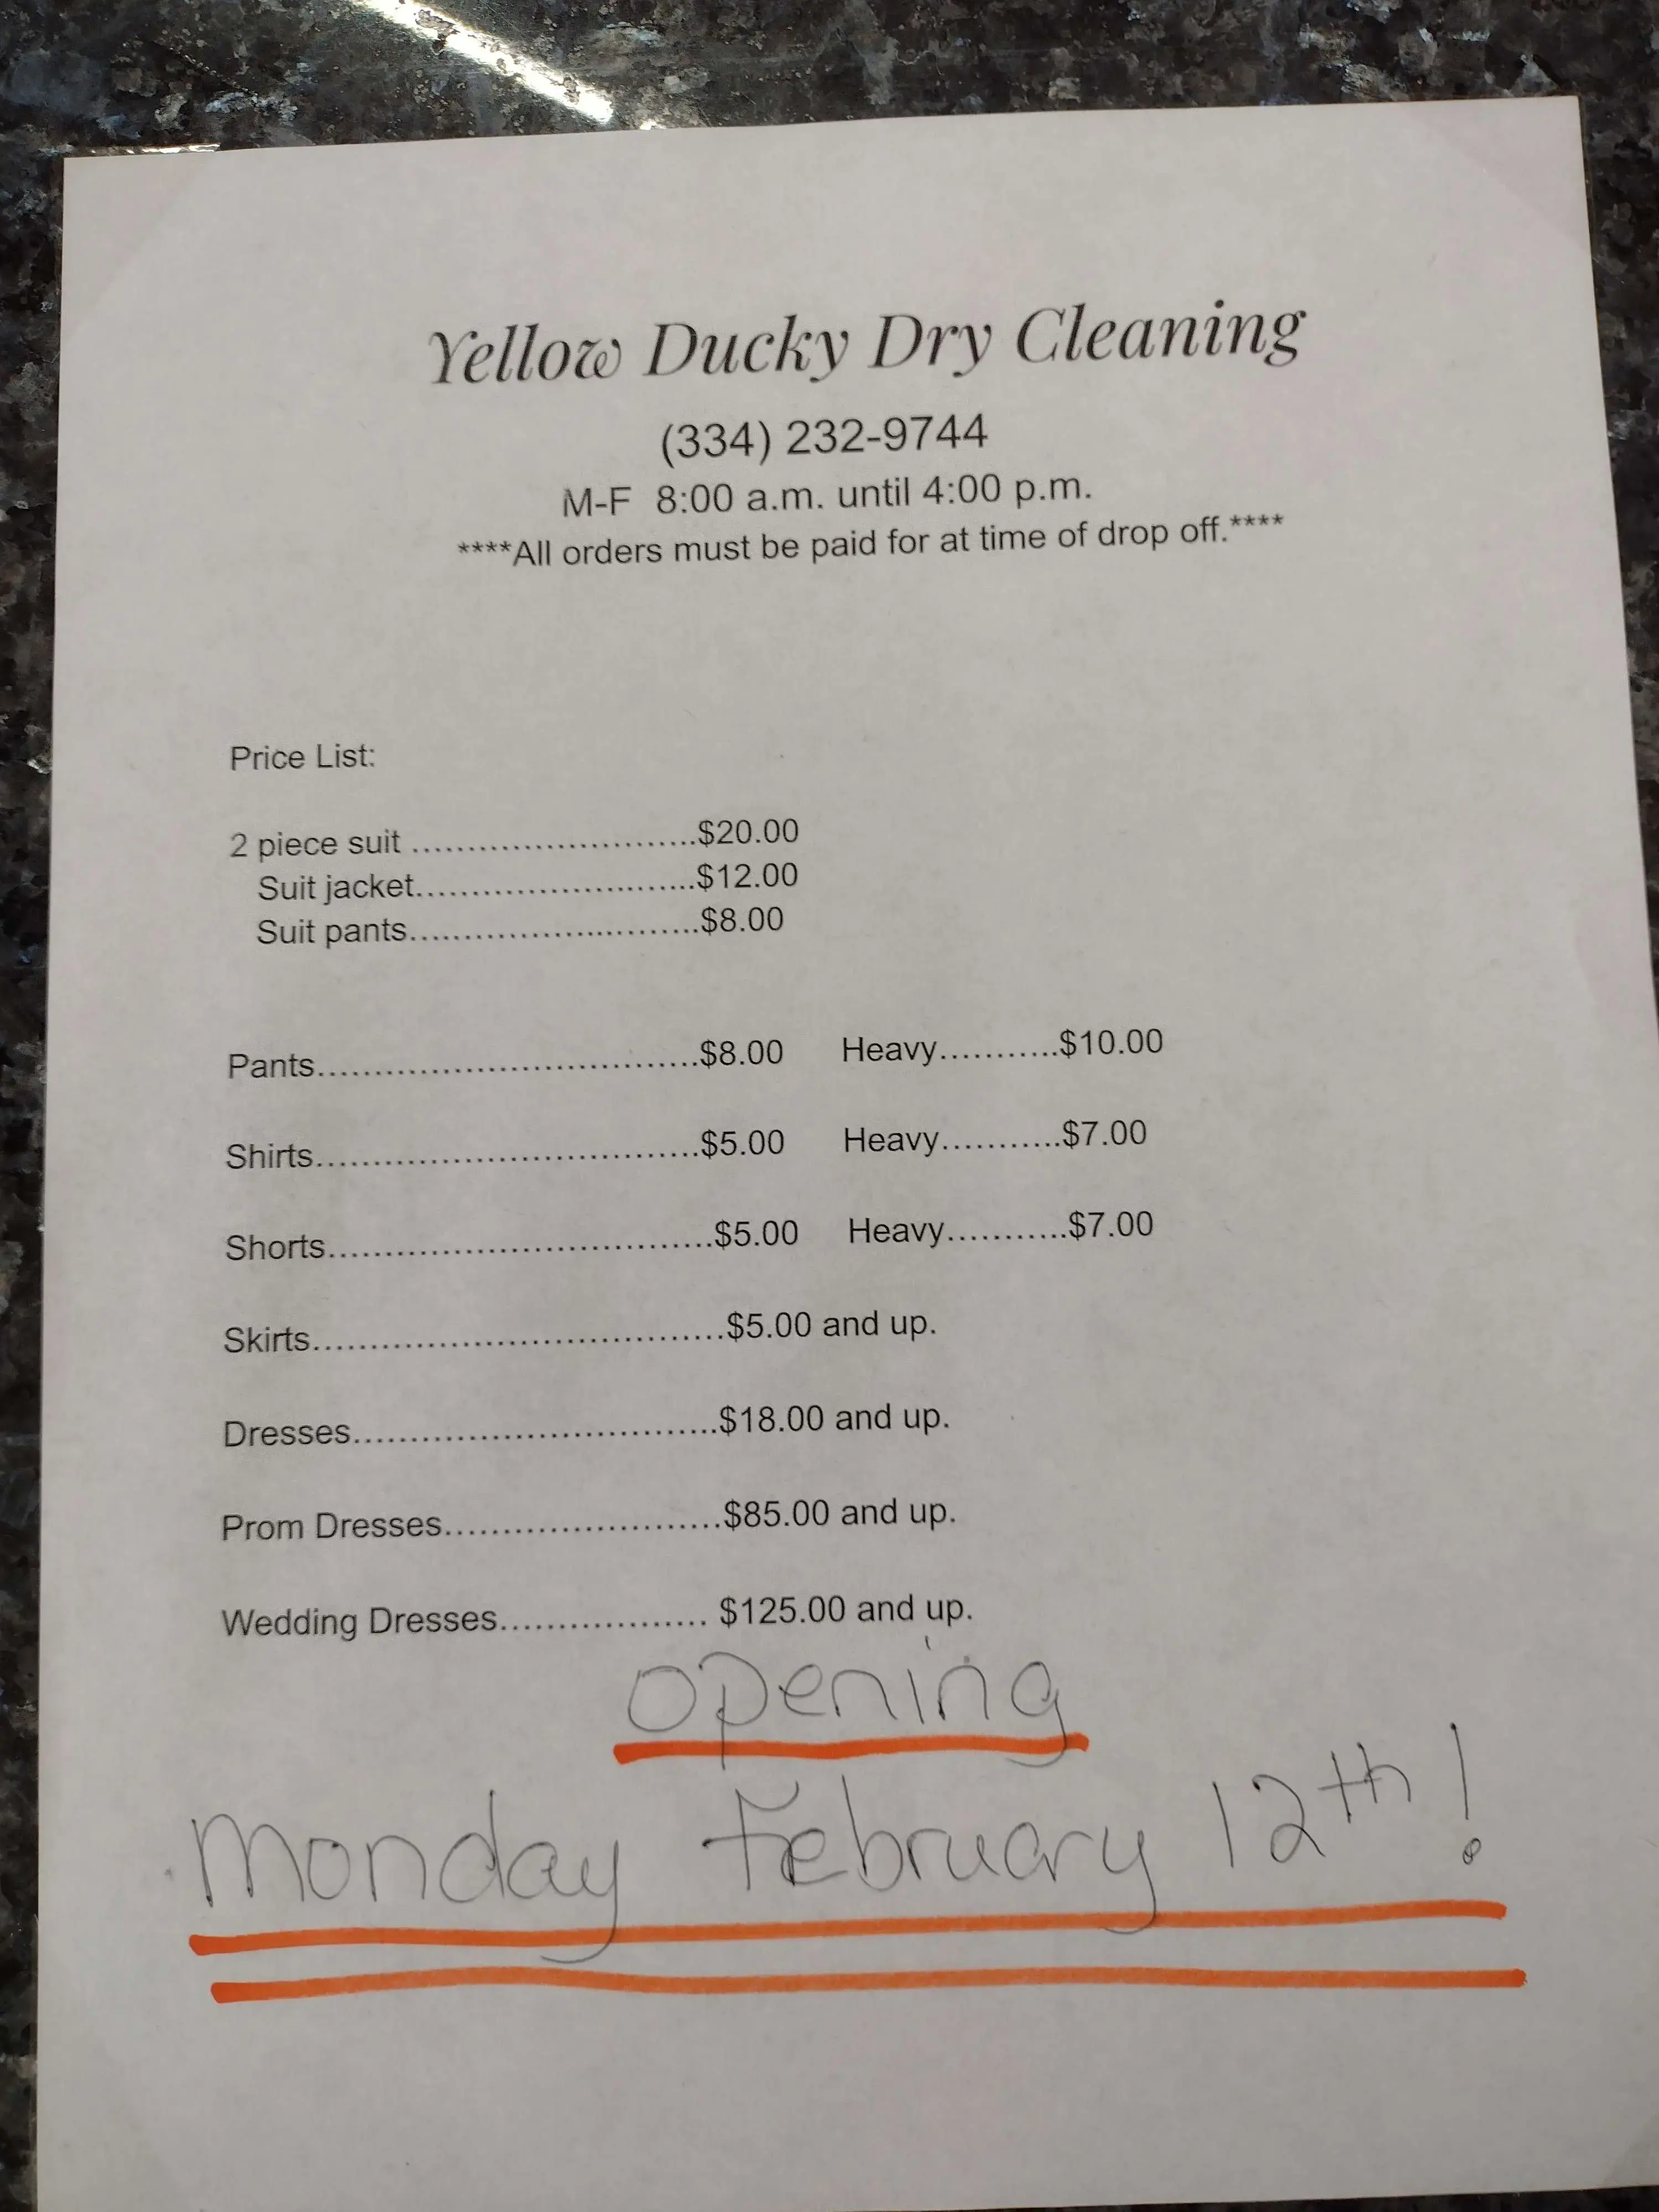 Yellow Ducky Dry Cleaning
(334) 232-9744
M-F 8:00 a.m. until 4:00 p.m.
****All orders must be paid for at time of drop off.****
Price List:
2 piece suit ..............................$20.00
Suit jacket..............................$12.00
Suit pants..............................$8.00
Pants........................................$8.00 Heavy...........$10.00
Shirts........................................$5.00 Heavy...........$7.00
Shorts........................................$5.00 Heavy...........$7.00
Skirts..........................................$5.00 and up.
Dresses......................................$18.00 and up.
Prom Dresses.............................$85.00 and up.
Wedding Dresses..................... $125.00 and up.
opening
Monday February 12th!